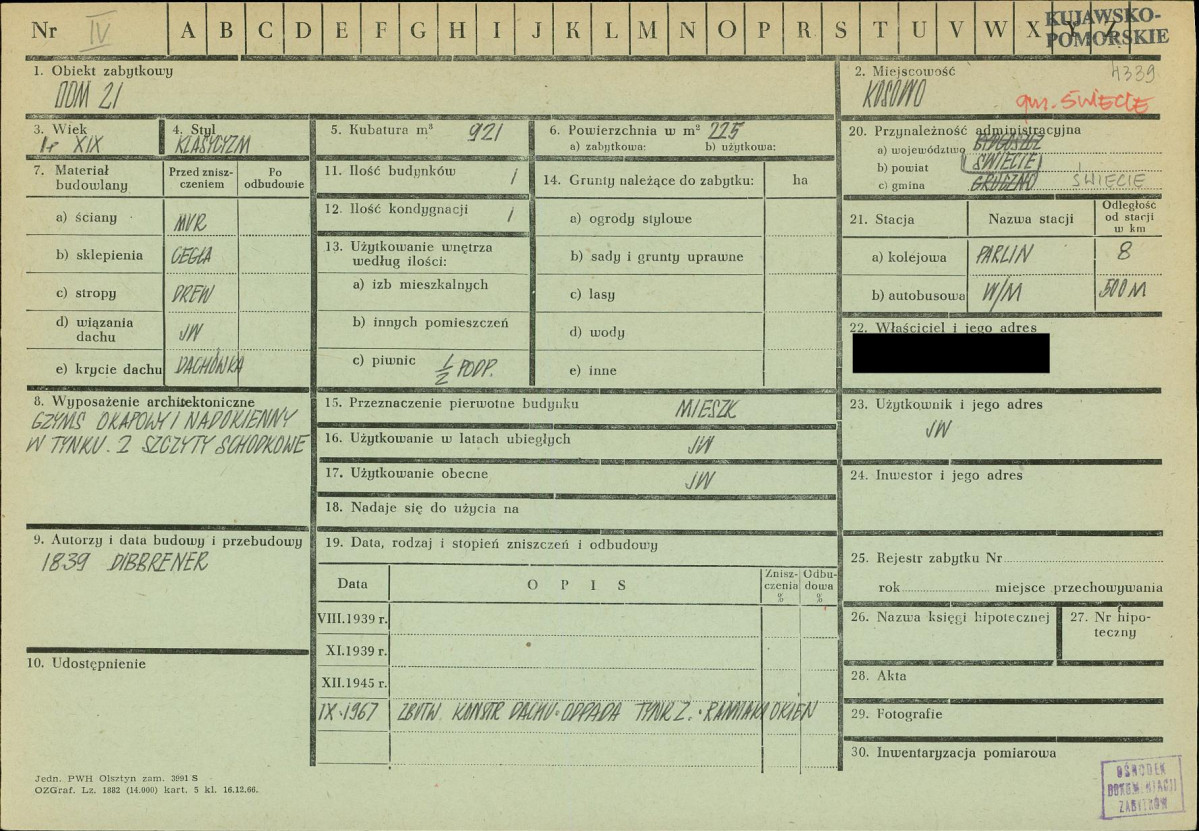 Nr IV A B C D E F G H I J K L M N O P R S T U V W X Y Z
KUJAWSKO-
POMORSKIE
1. Obiekt zabytkowy
DOM 21
2. Miejscowość 4339
KOSOWO
gm. ŚWIECIE
3. Wiek
XIX
4. Styl
KLASYCYZM
5. Kubatura m³ 921
6. Powierzchnia w m² 225
a) zabytkowa: b) użytkowa:
7. Materiał
budowlany
Przed znisz-
czeniem
Po
odbudowie
a) ściany MUR
b) sklepienia CEGŁA
c) stropy DREW
d) wiązania
dachu JW
e) krycie dachu DACHÓWKA
8. Wyposażenie architektoniczne
GZYMS OKAPOWY I NADOKIENNY
W TYNKU. 2 SZCZYTY SCHODKOWE
9. Autorzy i data budowy i przebudowy
1839 DIBBRENER
10. Udostępnienie
11. Ilość budynków 1
12. Ilość kondygnacji 1
13. Użytkowanie wnętrza
według ilości:
a) izb mieszkalnych
b) innych pomieszczeń
c) piwnic ½ PODP.
14. Grunty należące do zabytku: ha
a) ogrody stylowe
b) sady i grunty uprawne
c) lasy
d) wody
e) inne
15. Przeznaczenie pierwotne budynku MIESZK
16. Użytkowanie w latach ubiegłych JW
17. Użytkowanie obecne JW
18. Nadaje się do użycia na
19. Data, rodzaj i stopień zniszczeń i odbudowy
Data OPIS
Znisz-
czenia
%
Odbu-
dowa
%
VIII.1939 r.
XI.1939 r.
XII.1945 r.
IX.1967 ZBUTW. KONSTR DACHU. ODPADA TYNK Z. RAMIAKI OKIEN
20. Przynależność administracyjna
a) województwo BYDGOSZCZ
b) powiat ŚWIECIE
c) gmina GRUCZNO ŚWIECIE
21. Stacja Nazwa stacji
Odległość
od stacji
w km
a) kolejowa PARLIN 8
b) autobusowa W/M 500 M
22. Właściciel i jego adres
23. Użytkownik i jego adres
JW
24. Inwestor i jego adres
25. Rejestr zabytku Nr
rok miejsce przechowywania
26. Nazwa księgi hipotecznej
27. Nr hipo-
teczny
28. Akta
29. Fotografie
30. Inwentaryzacja pomiarowa
OŚRODEK
DOKUMENTACJI
ZABYTKÓW
Jedn. PWH Olsztyn zam. 3991 S
OZGraf. Lz. 1882 (14.000) kart. 5 kl. 16.12.66.